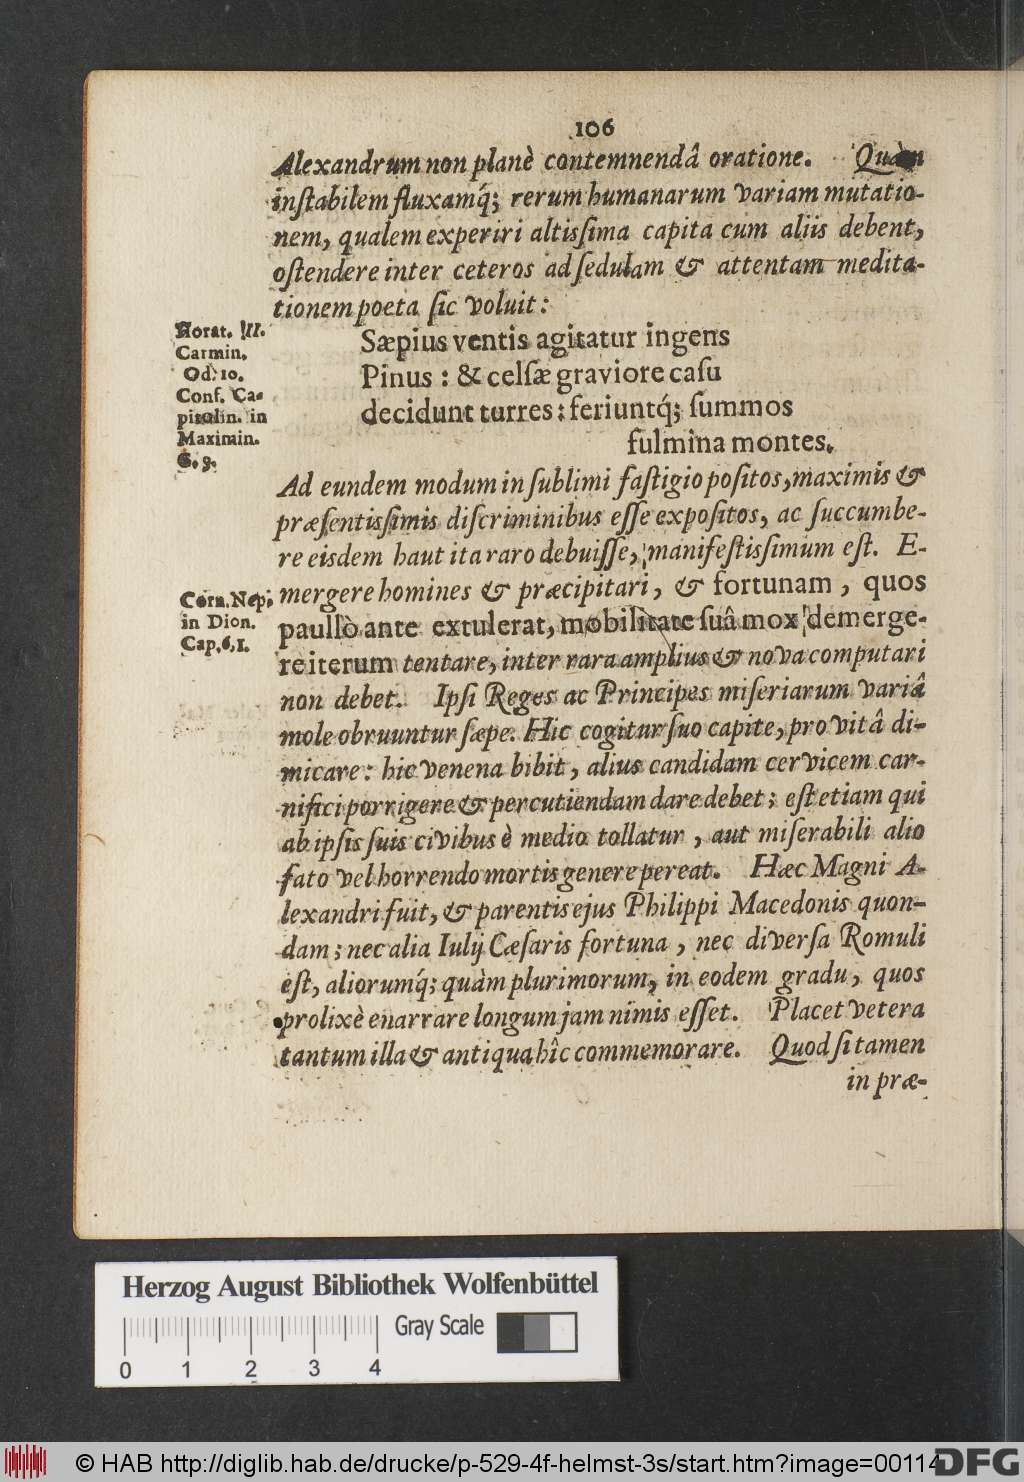 106
Alexandrum non planè contemnendâ oratione. Quàm
inſtabilem fluxamq́; rerum humanarum variam mutatio-
nem, qualem experiri altisſima capita cum aliis debent,
oſtendere inter ceteros ad ſedulam & attentam medita-
tionem poeta ſic voluit:
Horat. III.
Carmin.
Od: 10.
Conf. Ca-
pitolin. in
Maximin.
C. 9.
Sæpius ventis agitatur ingens
Pinus: & celſæ graviore caſu
decidunt turres: feriuntq́; ſummos
fulmina montes.
Ad eundem modum in ſublimi faſtigio poſitos, maximis &
præſentisſimis diſcriminibus eſſe expoſitos, ac ſuccumbe-
re eisdem haut ita raro debuiſſe, manifeſtisſimum eſt. E-
Corn. Nep.
in Dion.
Cap. 6, 1.
mergere homines & præcipitari, & fortunam, quos
paullò ante extulerat, mobilitate ſuâ mox demerge-
re iterum tentare, inter rara amplius & nova computari
non debet. Ipſi Reges ac Principes miſeriarum variâ
mole obruuntur ſæpe. Hic cogitur ſuo capite, pro vitâ di-
micare: hic venena bibit, alius candidam cervicem car-
nifici porrigere & percutiendam dare debet; eſt etiam qui
ab ipſis ſuis civibus è medio tollatur, aut miſerabili alio
fato vel horrendo mortis genere pereat. Hæc Magni A-
lexandri fuit, & parentis ejus Philippi Macedonis quon-
dam; nec alia Iulij Cæſaris fortuna, nec diverſa Romuli
eſt, aliorumq́; quàm plurimorum, in eodem gradu, quos
prolixè enarrare longum jam nimis eſſet. Placet vetera
tantum illa & antiqua hîc commemorare. Quod ſi tamen
in præ-
Herzog August Bibliothek Wolfenbüttel
Gray Scale
0 1 2 3 4
© HAB http://diglib.hab.de/drucke/p-529-4f-helmst-3s/start.htm?image=00114
DFG